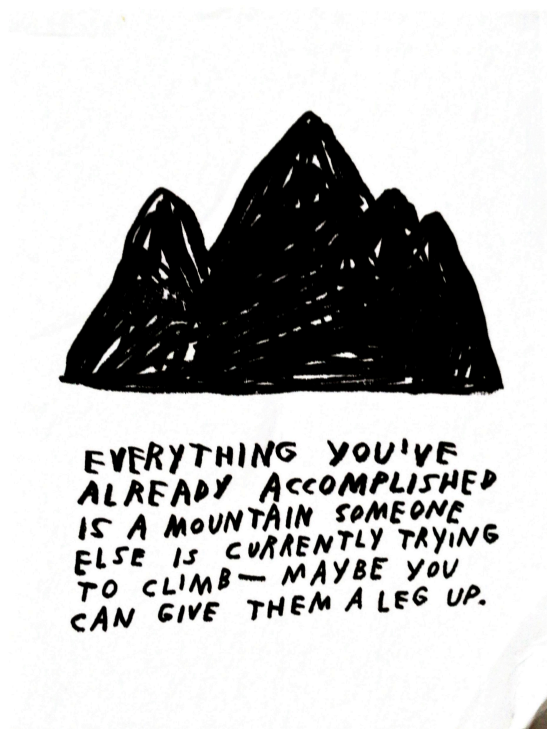 EVERYTHING YOU'VE
ALREADY ACCOMPLISHED
IS A MOUNTAIN SOMEONE
ELSE IS CURRENTLY TRYING
TO CLIMB— MAYBE YOU
CAN GIVE THEM A LEG UP.